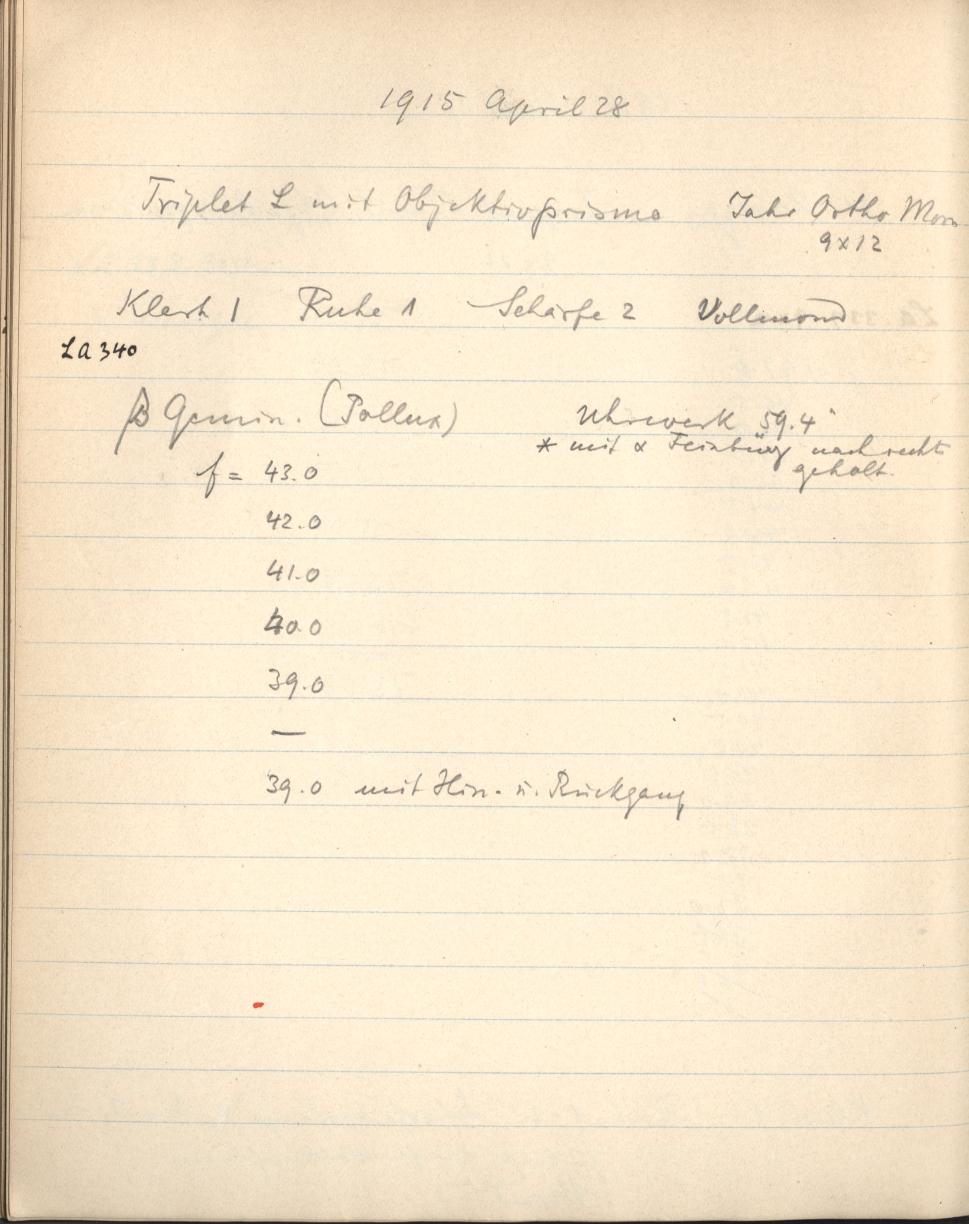 1915 April 28
Triplet L mit Objektivprisma Jahr Ortho
9x12
Klarh 1 Ruhe 1 Schärfe 2 Vollmond
LA 340
β Gemin. (Pollux) Uhrwerk 59.4
* mit α nach rechts
geholt.
f = 43.0
42.0
41.0
40.0
39.0
—
39.0 mit Hin- u. Rückgang